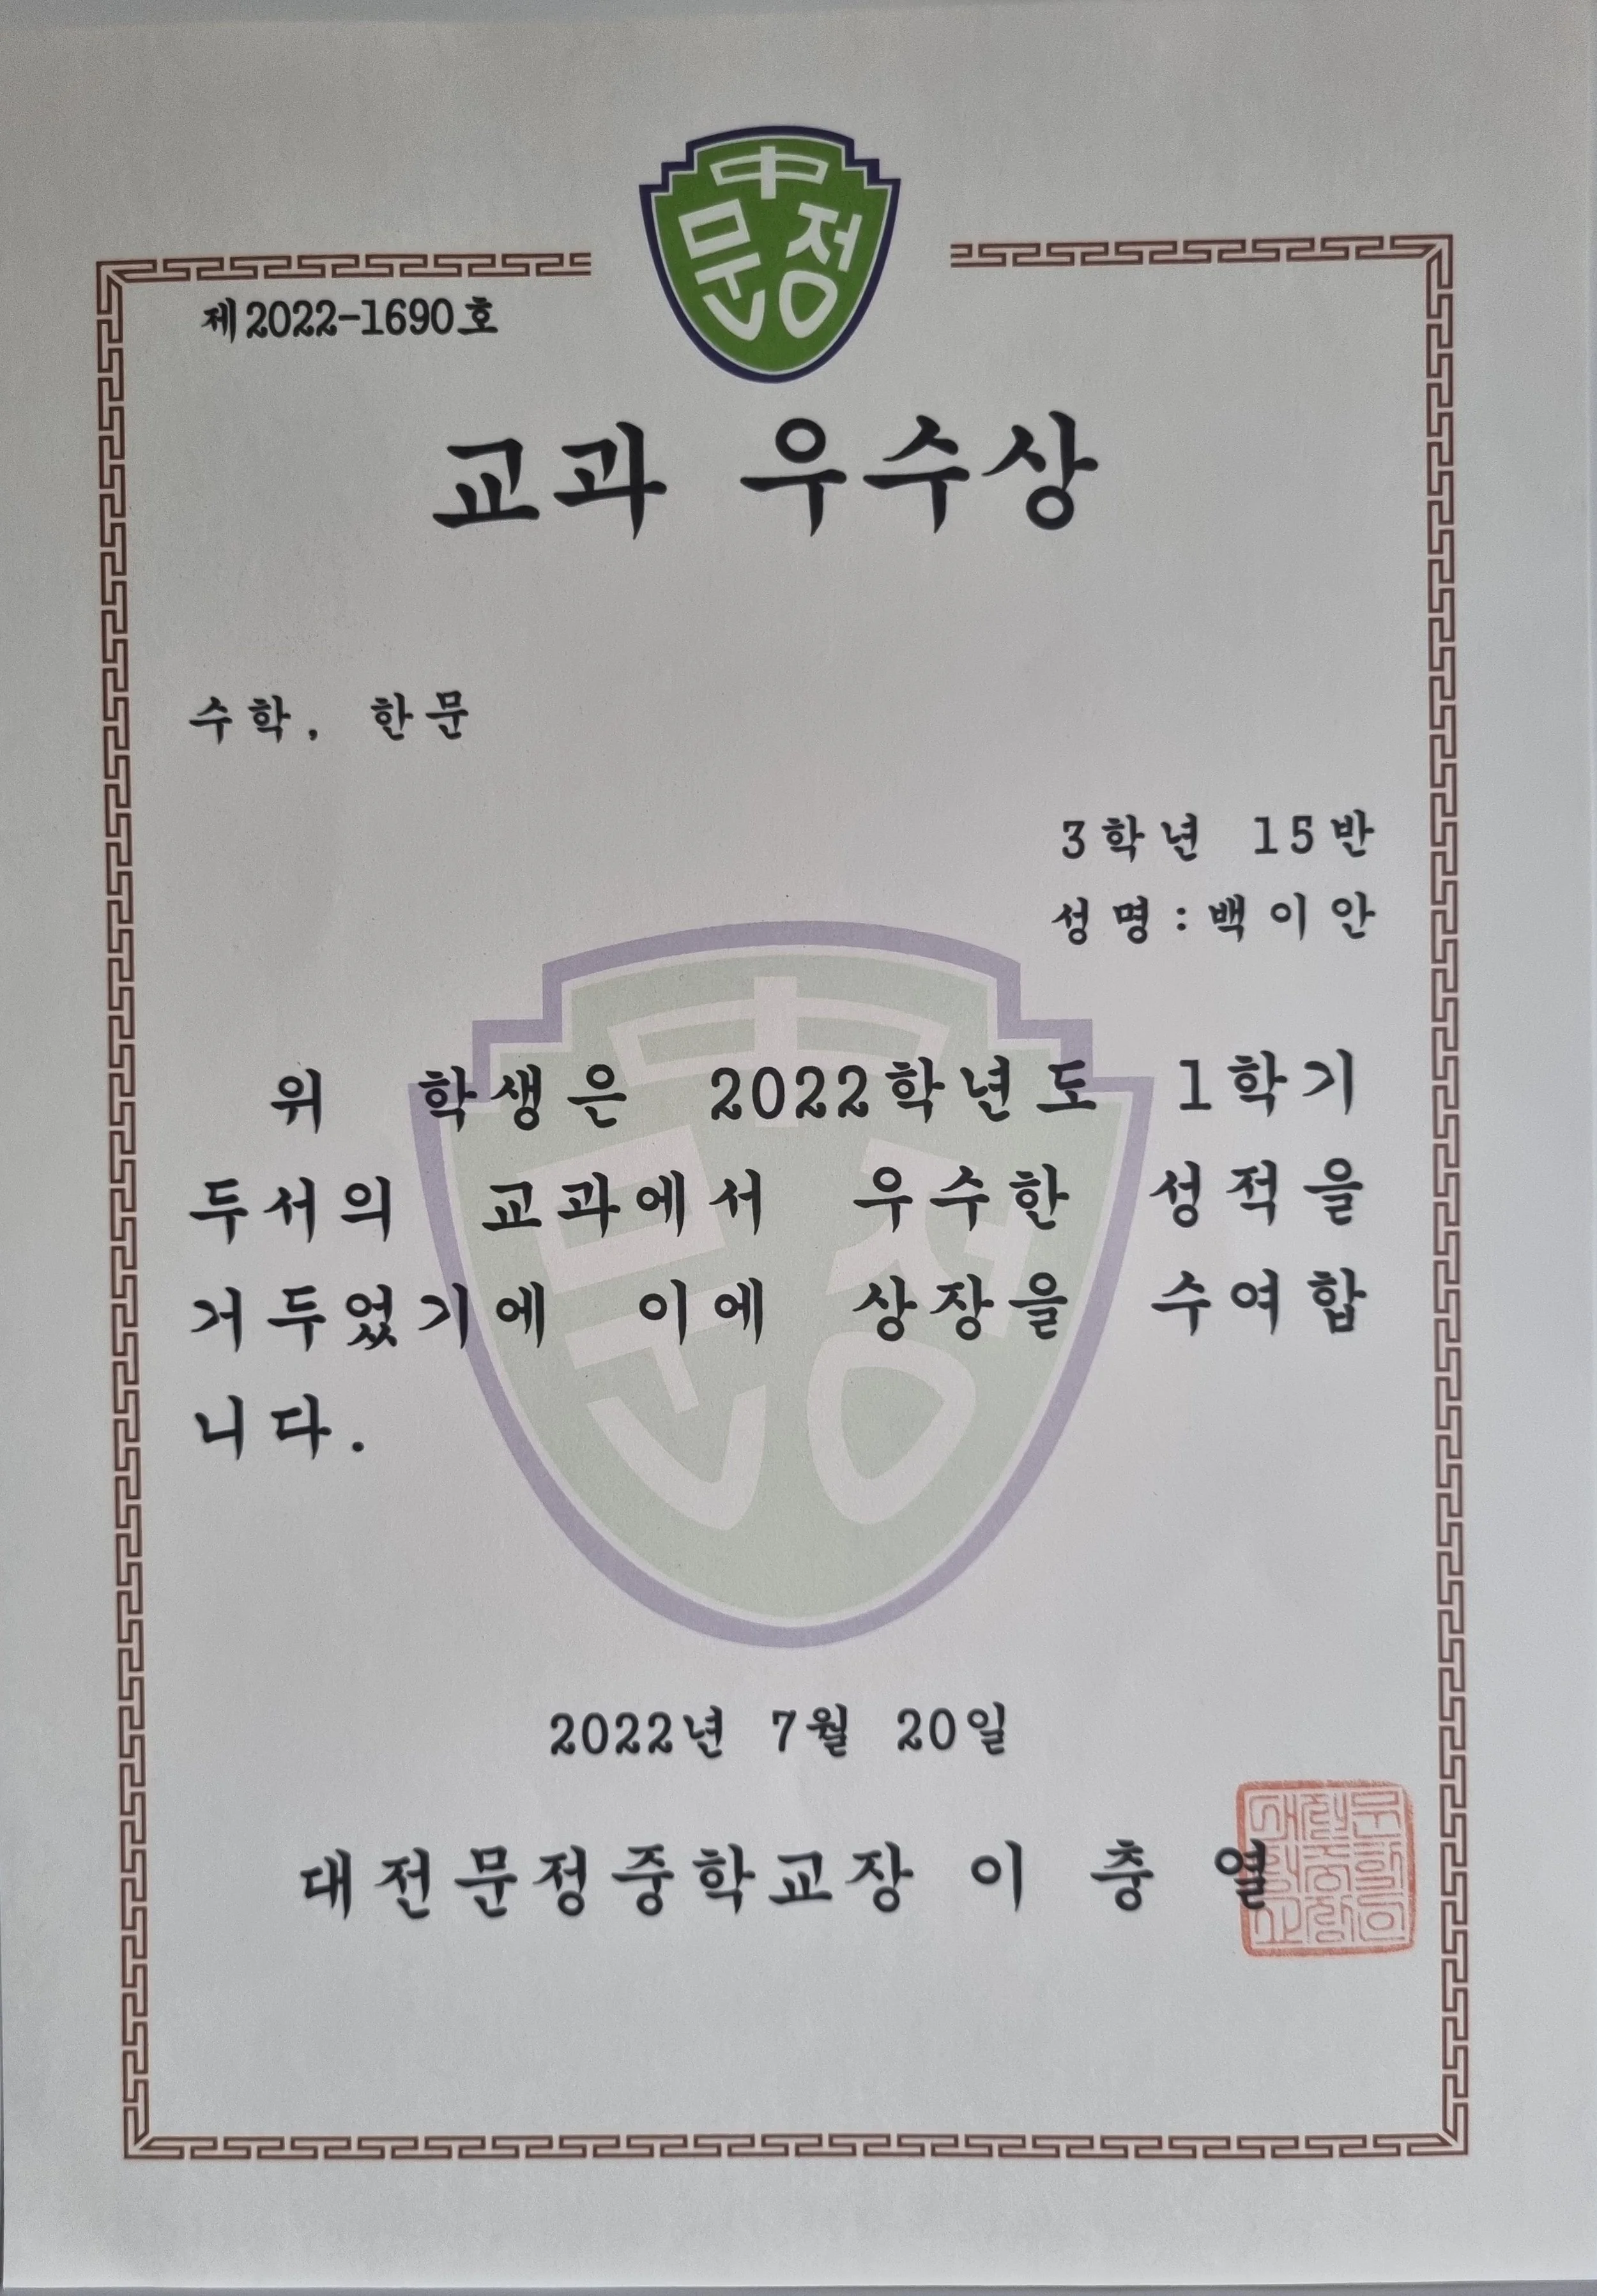 中
문정
제2022-1690호
교과 우수상
수학, 한문
3학년 15반
성명:백이안
위 학생은 2022학년도 1학기
두서의 교과에서 우수한 성적을
거두었기에 이에 상장을 수여합
니다.
2022년 7월 20일
대전문정중학교장 이 충 열